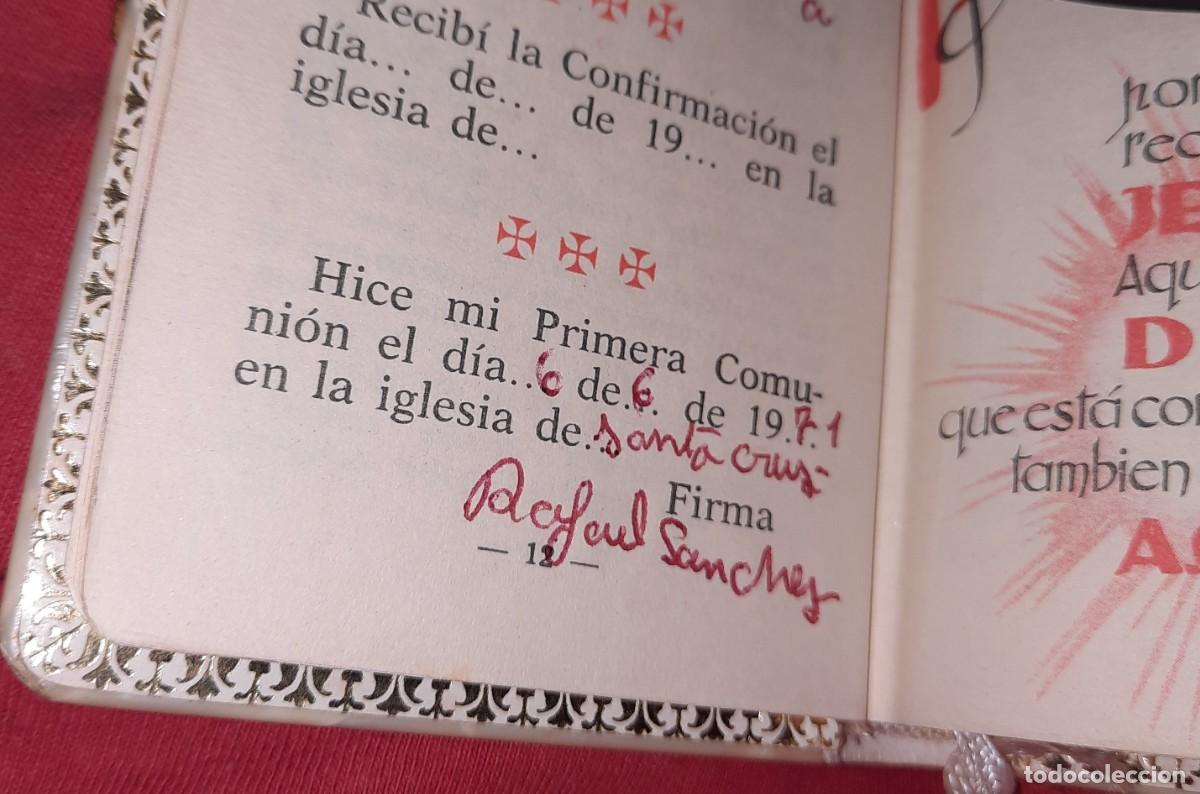 a
Recibí la Confirmación el
día... de... de 19... en la
iglesia de...
Hice mi Primera Comu-
nión el día..6 de.6. de 19.7.1
en la iglesia de...santa cruz
Firma
Rafael Sanchez
— 12 —
JE
Aqu
D
que está co
tambien
todocoleccion